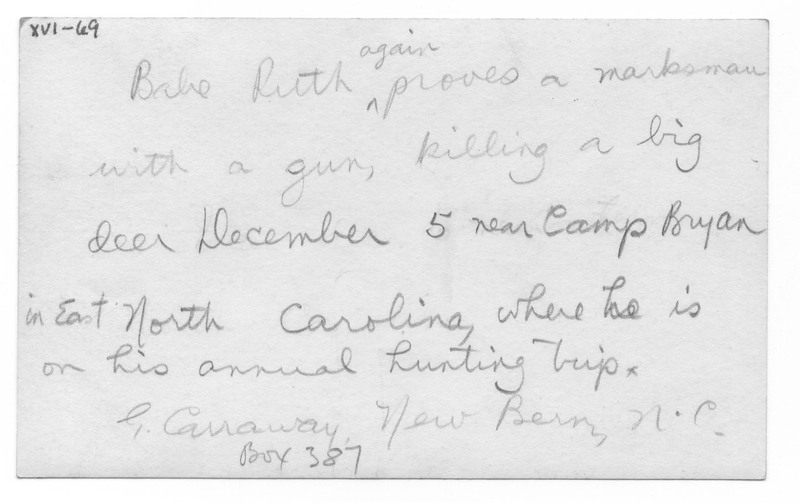 XVI-69
Babe Ruth again proves a marksman
with a gun, killing a big
deer December 5 near Camp Bryan
in East North Carolina, where he is
on his annual hunting trip.
G. Carraway, New Bern, N.C.
Box 387